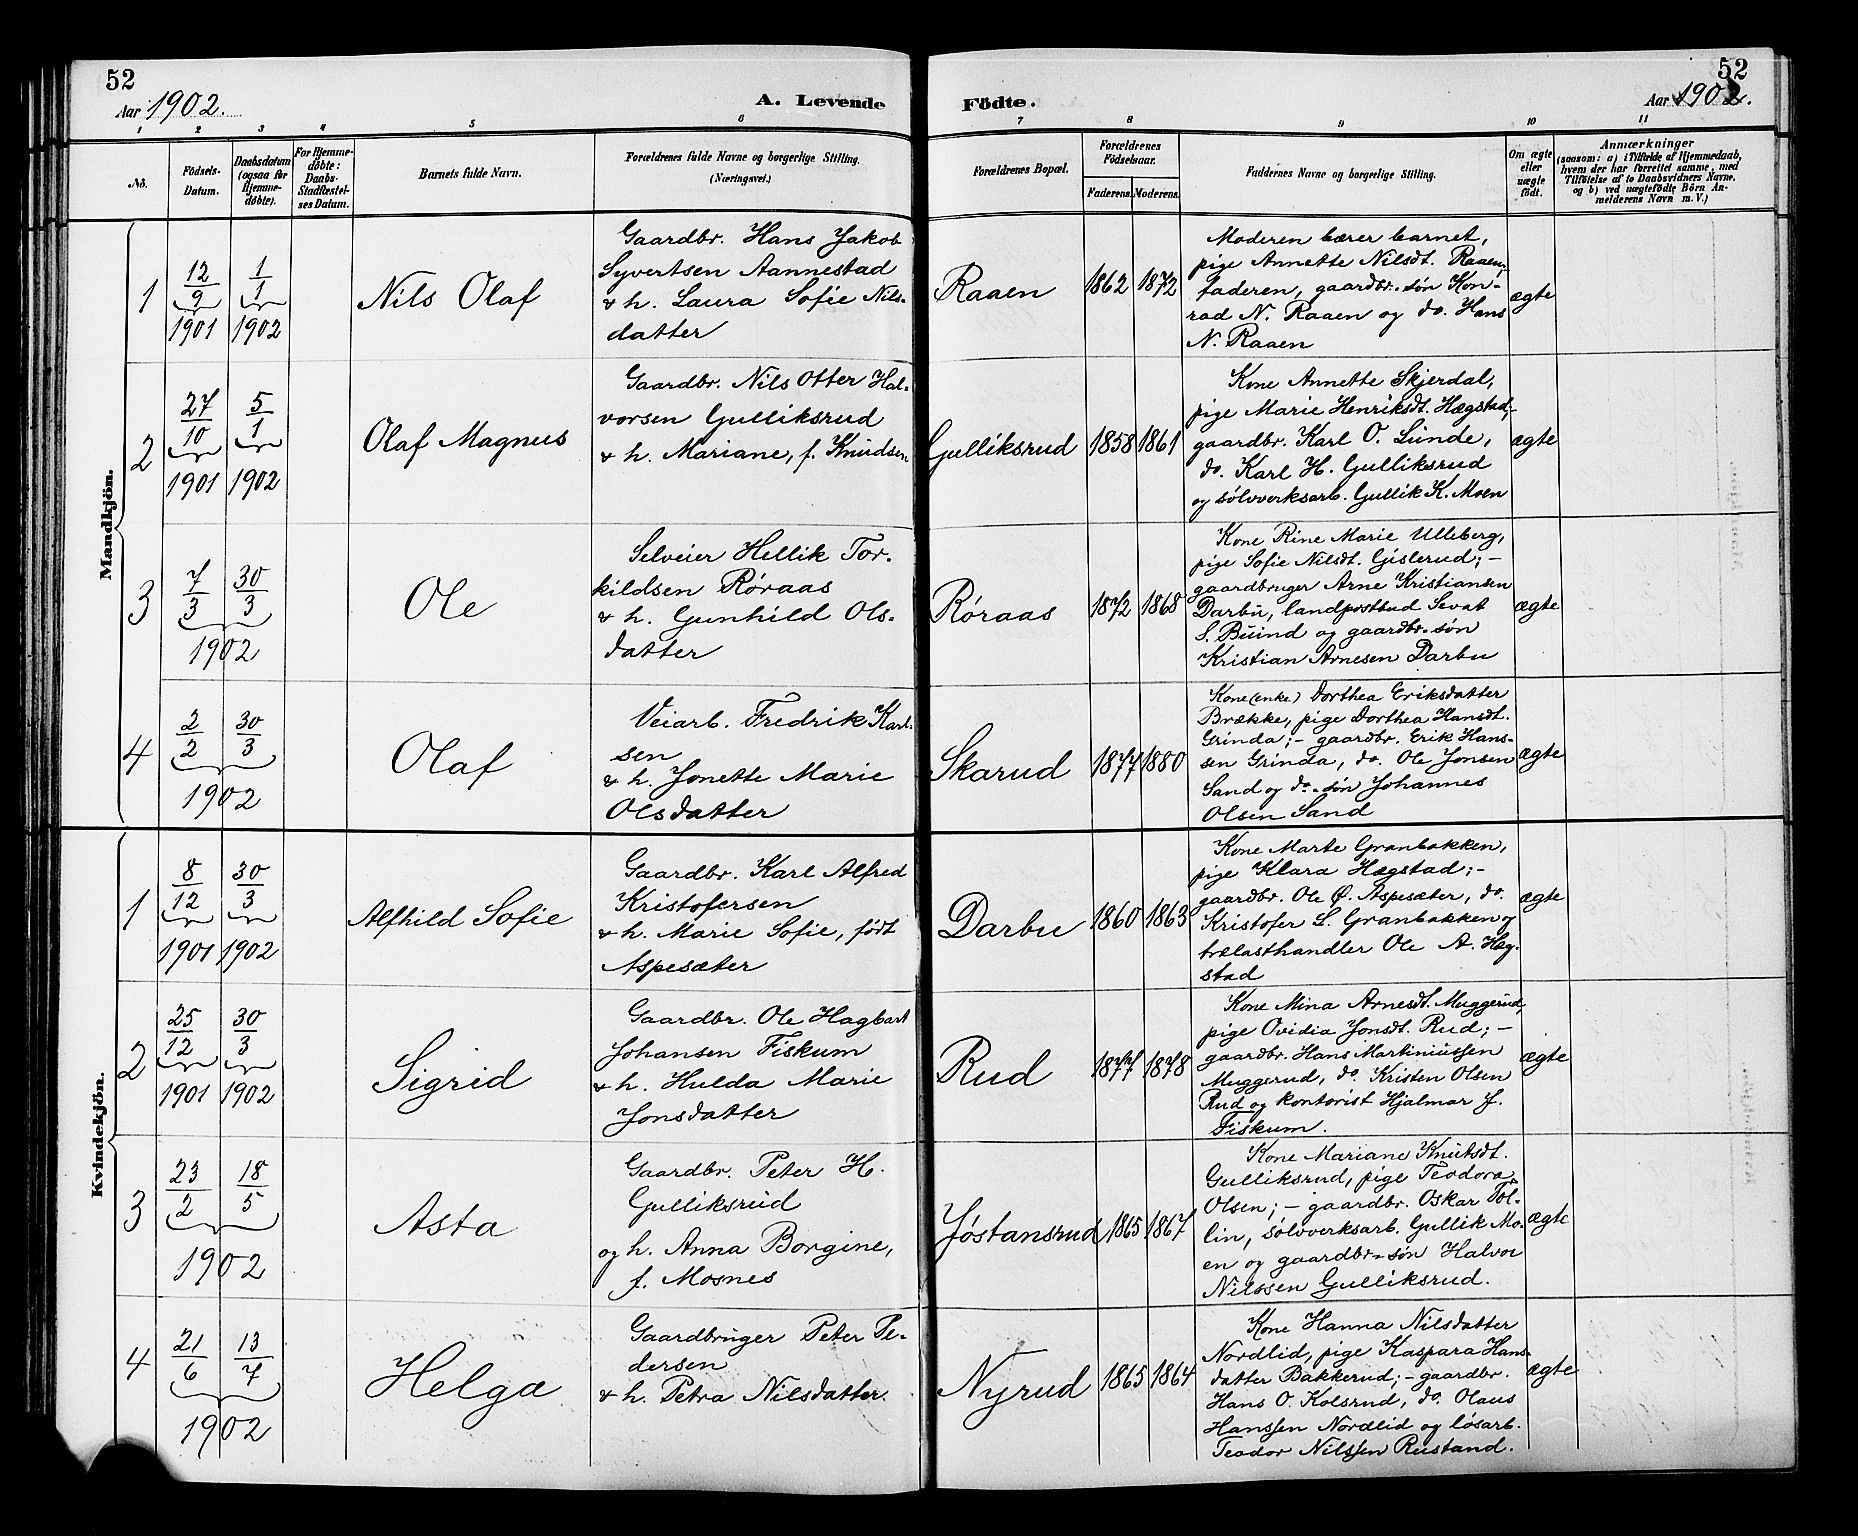 52
Aar 1902.
A. Levende
Födte.
52
Aar 1902.
1 2 3 4 5 6 7 8 9 10 11
No.
Födsels-
Datum.
Daabsdatum
(ogsaa for
Hjemme-
döbte).
For Hjemme-
döbte:
Daabs-
Stadfæstel-
ses Datum.
Barnets fulde Navn.
Forældrenes fulde Navne og borgerlige Stilling.
(Næringsvei.)
Forældrenes Bopæl.
Forældrenes
Födselsaar.
Faderens.
Moderens.
Faddernes Navne og borgerlige Stilling.
Om ægte
eller
uægte
födt.
Anmærkninger
(saasom: a) i Tilfælde af Hjemmedaab,
hvem der har forrettet samme, med
Tilföielse af to Daabsvidners Navne.
og b) ved uægtefödte Börn An-
melderens Navn m. V.)
Mandkjön.
1
12/9 1901
1/1 1902
Nils Olaf
Gaardbr. Hans Jakob
Syvertsen Aannestad
& h. Laura Sofie Nils-
datter
Raaen
1862
1872
Moderen bærer barnet,
pige Annette Nilsdt. Raaen,
faderen, gaardbr.-søn Kon-
rad N. Raaen og do. Hans
N. Raaen
ægte
2
27/10 1901
5/1 1902
Olaf Magnus
Gaardbr. Nils Otter Hal-
vorsen Gulliksrud
& h. Mariane, f. Knudsen
Gulliksrud
1858
1861
Kone Annette Skjerdal,
pige Marie Henriksdt. Hægstad,-
gaardbr. Karl O. Lunde,
do. Karl H. Gulliksrud
og sølvverksarb. Gullik K. Moen
ægte
3
7/3
30/3
1902
Ole
Selveier Hellik Tor-
kildsen Røraas
& h. Gunhild Ols-
datter
Røraas
1872
1868
Kone Rine Marie Ulleberg,
pige Sofie Nilsdt. Gislerud;-
gaardbruger Arne Kristiansen
Darbu, landpostbud Sevat
S. Buind og gaardbr.-søn
Kristian Arnesen Darbu
ægte
4
2/2
30/3
1902
Olaf
Veiarb. Fredrik Karl-
sen
& h. Jonette Marie
Olsdatter
Skarud
1877
1880
Kone (enke) Dorthea Eriksdatter
Brække, pige Dorthea Hansdt.
Grinda;- gaardbr. Erik Hans-
sen Grinda, do. Ole Jonsen
Sand og do.-søn Johannes
Olsen Sand
ægte
Kvindekjön.
1
8/12 1901
30/3 1902
Alfhild Sofie
Gaardbr. Karl Alfred
Kristofersen
& h. Marie Sofie, født
Aspesæter
Darbu
1860
1863
Kone Marte Granbakken,
pige Klara Hægstad;-
gaardbr. Ole Ø. Aspesæter, do.
Kristofer L. Granbakken og
trælasthandler Ole A. Hæg-
stad
ægte
2
25/12 1901
30/3 1902
Sigrid
Gaardbr. Ole Hagbart
Johansen Fiskum
& h. Hulda Marie
Jonsdatter
Rud
1877
1878
Kone Mina Arnesdt. Muggerud,
pige Ovidia Jonsdt. Rud;-
gaardbr. Hans Martiniussen
Muggerud, do. Kristen Olsen
Rud og kontorist Hjalmar J.
Fiskum.
ægte
3
23/2
18/5
1902
Asta
Gaardbr. Peter H.
Gulliksrud
og h. Anna Borgine,
f. Mosnes
Jøstansrud
1865
1867
Kone Mariane Knutsdt.
Gulliksrud, pige Teodora
Olsen;- gaardbr. Oskar Tol-
lin, sølvverksarb. Gullik Mo-
en og gaardbr.-søn Halvor
Nilssen Gulliksrud.
ægte
4
21/6
13/7
1902
Helga
Gaardbruger Peter Pe-
dersen
& h. Petra Nilsdatter.
Nyrud
1865
1864
Kone Hanna Nilsdatter
Nordlid, pige Kaspara Hans-
datter Bakkerud;- gaardbr.
Hans O. Kolsrud, do. Olaus
Hanssen Nordlid og løsarb.
Teodor Nilssen Rustand.
ægte